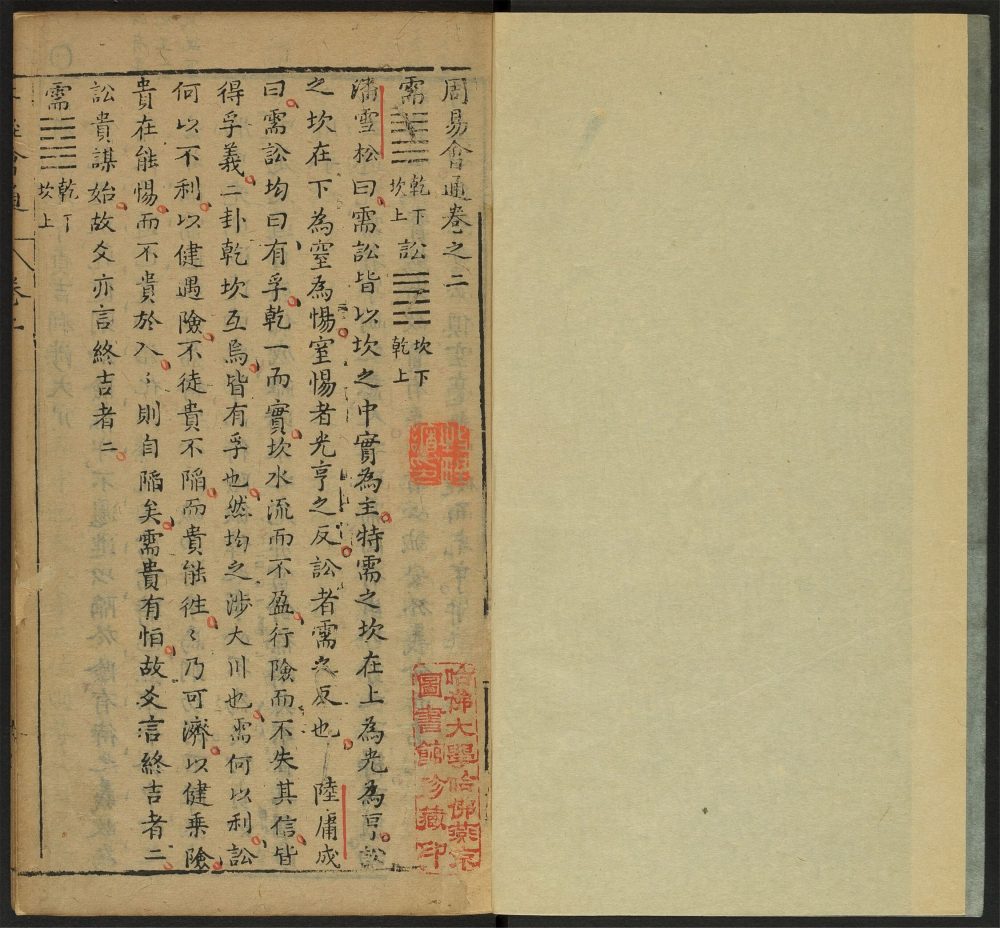 周易會通卷之二
需 乾下坎上 訟 坎下乾上
潘雪松曰需訟皆以坎之中實為主特需之坎在上為光為亨訟
之坎在下為窒為惕窒惕者光亨之反訟者需之反也 陸庸成
曰需訟均曰有孚乾一而實坎水流而不盈行險而不失其信皆
得孚義二卦乾坎互焉皆有孚也然均之涉大川也需何以利訟
何以不利以健遇險不徒貴不陷而貴能徃〻乃可濟以健乘險
貴在能惕而不貴於入〻則自陷矣需貴有恒故爻言終吉者二
訟貴謀始故爻亦言終吉者二
需 乾下坎上
哈佛大學哈佛燕京
圖書館珍藏印